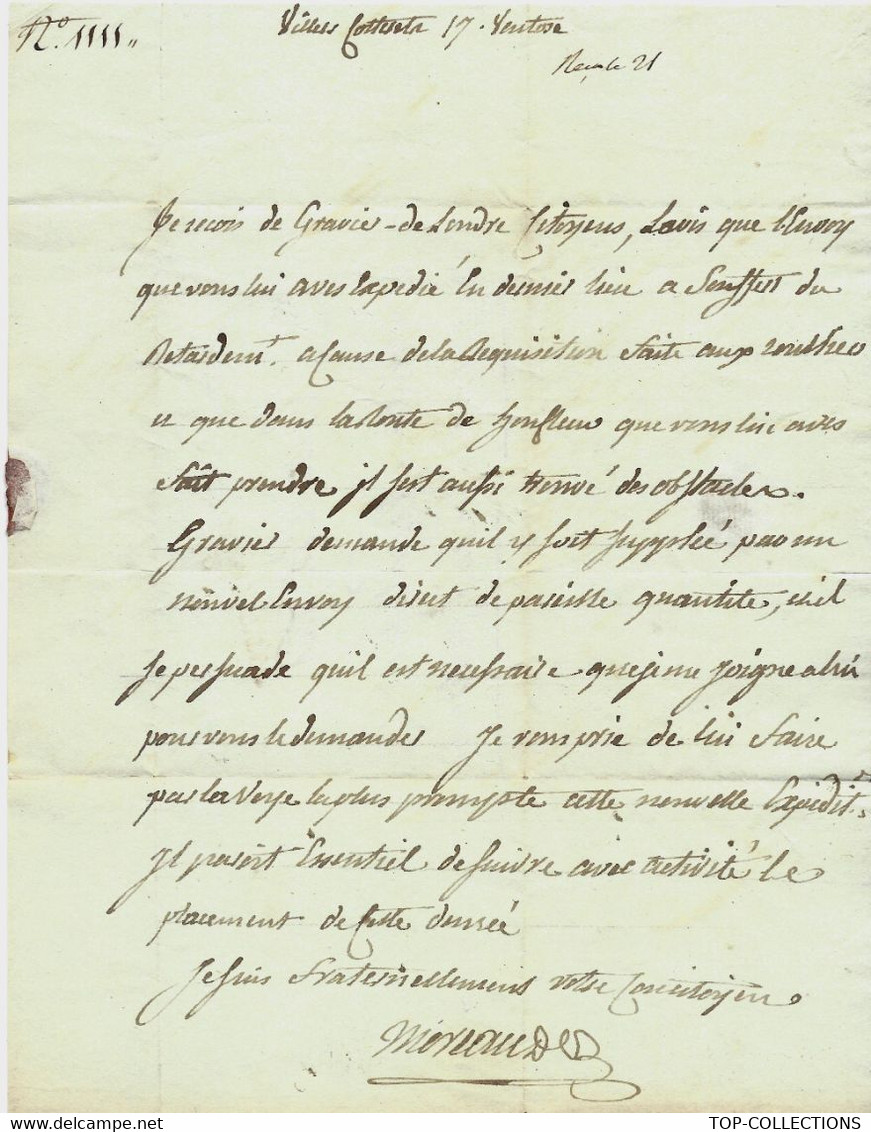 N.° 1111"
Villers Cotterets 17. Ventose
Reçu le 21
Je reçois de Gravier - de Londre Citoyens, Lavis que lEnvoy
que vous lui aves Expedié En dernier lieu a Souffert du
Retardemt. a Cause de la Requisition faite aux rouliers
et que dans la Route de honfleur que vous lui aves
fait prendre jl sest aussi trouvé des obstacles.
Gravier demande quil y soit supplée par un
nouvel Envoy direct de pareille quantité, et il
se persuade quil est necessaire que je me joigne a lui
pour vous le demander Je vous prie de lui faire
par la Voye la plus prompte cette nouvelle Expedit.n
jl paroit Essentiel de suivre avec activité le
placement de Cette denrée
Je suis fraternellement votre Concitoyen
Moreau
TOP-COLLECTIONS
www.delcampe.net